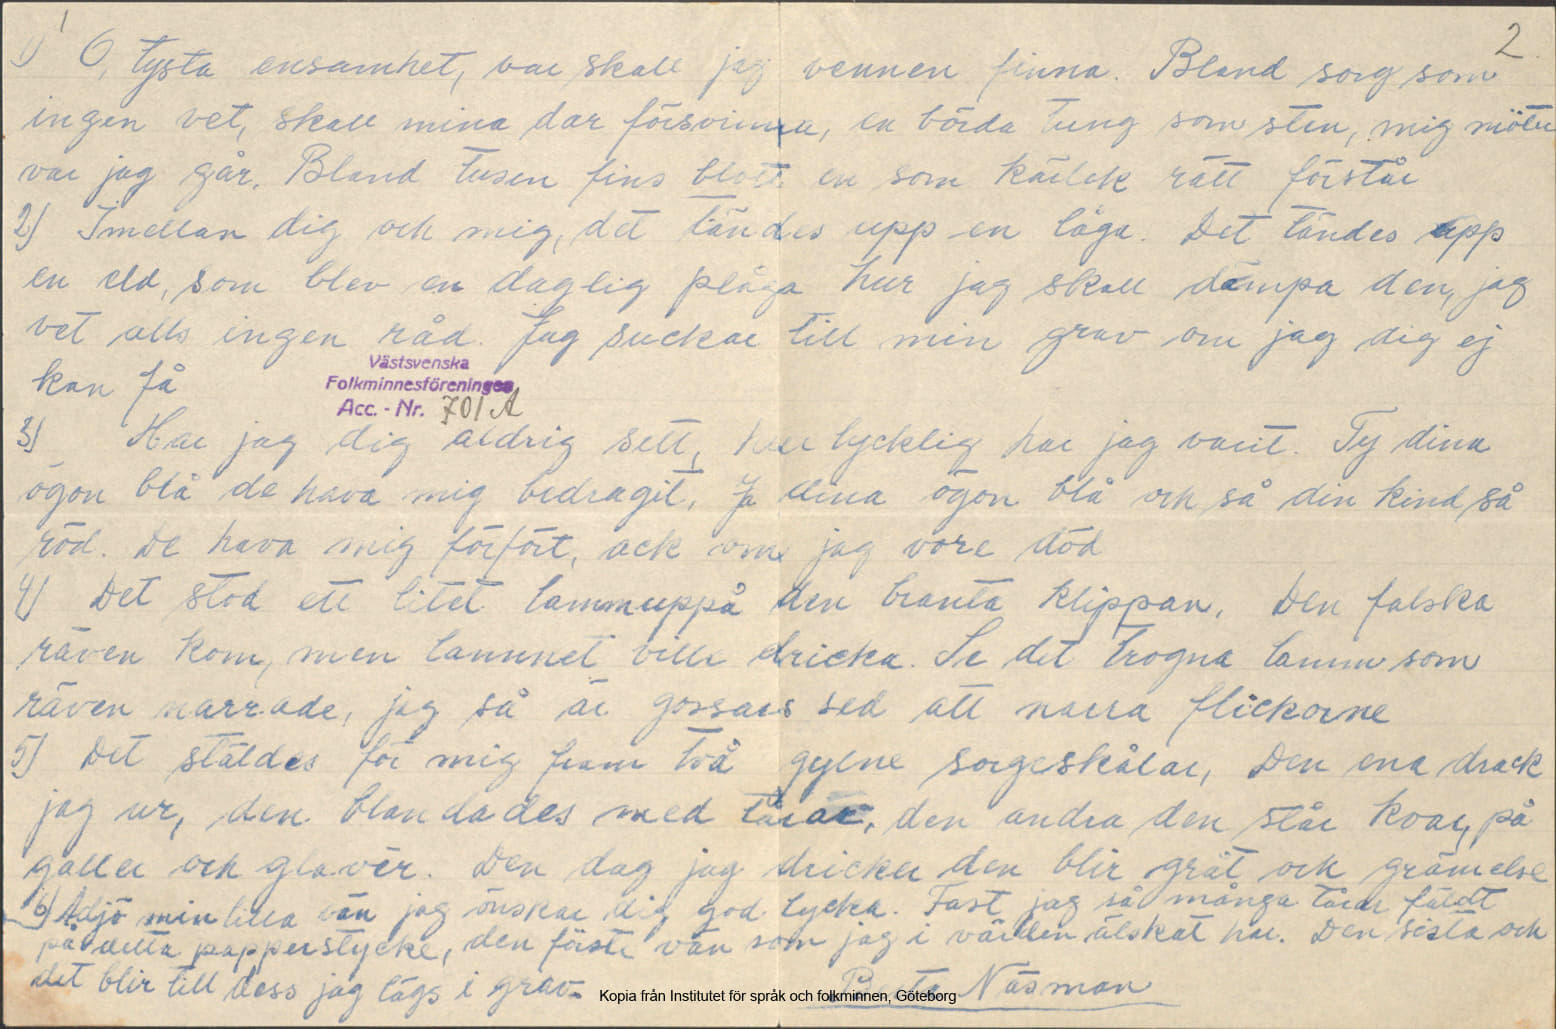 1
2
1) O, tysta ensamhet, var skall jag vennen finna. Bland sorg som
ingen vet, skall mina dar försvinna, en börda tung som sten, mig möter
var jag går. Bland tusen fins blott en som kärlek rätt förstår
2) Imellan dig och mig, det tändes upp en låga. Det tändes upp
en eld, som blev en daglig plåga hur jag skall dämpa den, jag
vet alls ingen råd. Jag suckar till min grav om jag dig ej
kan få
Västsvenska
Folkminnesföreningen
Acc. - Nr. 701 A
3) Har jag dig aldrig sett, hur lycklig har jag varit. Ty dina
ögon blå de hava mig bedragit. Ja dina ögon blå och så din kind så
röd. De hava mig förfört, ack om jag vore död
4) Det stod ett litet lamm uppå den branta klippan. Den falska
räven kom, men lammet ville dricka. Se det trogna lamm som
räven narrade, jag så är gossars sed att narra flickorne
5) Det stäldes för mig fram två gylne sorgeskålar, Den ena drack
jag ur, den blandades med tårar, den andra den står kvar, på
galler och glavér. Den dag jag dricker den blir gråt och grämelse
6) Adjö min lilla vän jag önskar dig god lycka. Fast jag så många tårar fäldt
på detta papperstycke, den förste vän som jag i världen älskat har. Den sista och
det blir till dess jag lägs i grav.
Berta Näsman
Kopia från Institutet för språk och folkminnen, Göteborg